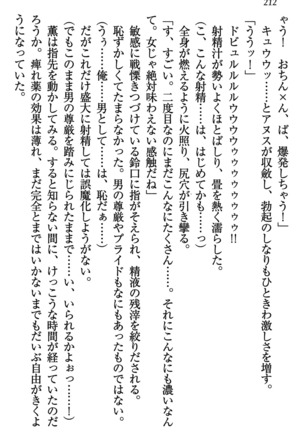 212
ゃう！ おちん×ん、ば、爆発しちゃう！」
キュウウッ……とアヌスが収斂し、勃起のしなりもひときわ激しさを増す。
「ううッ！」
ドビュルルルルウウウウウウウウウウウゥ!!
射精汁が勢いよくほとばしり、畳を熱く濡らした。
（こ、こんな射精……は、はじめてかも……っ）
全身が燃えるように火照り、尻穴が引き攣る。
「す、すごい。二度目なのにまだこんなにたくさん……。それにこんなにも濃いなん
て。女じゃ絶対味わえない感触だね」
敏感に戦慄きつづけている鈴口に指がそえられ、精液の残滓を絞りだされる。
恥ずかしくてたまらなかった。男の尊厳やプライドもなにもあったものではない。
（うぅ……俺……男として……は、恥だぁ……）
だがこれだけ盛大に射精しては誤魔化しようがない。
（でもこのまま男の尊厳を踏みにじられたままで……い、いられるかよぉっ……！）
薫は指先を動かしてみる。すると知らない間に、けっこうな時間が経っていたのだ
ろうか。痺れ薬の効果は薄れ、まだ完全とまではいかないまでもだいぶ自由がきくよ
うになっていた。